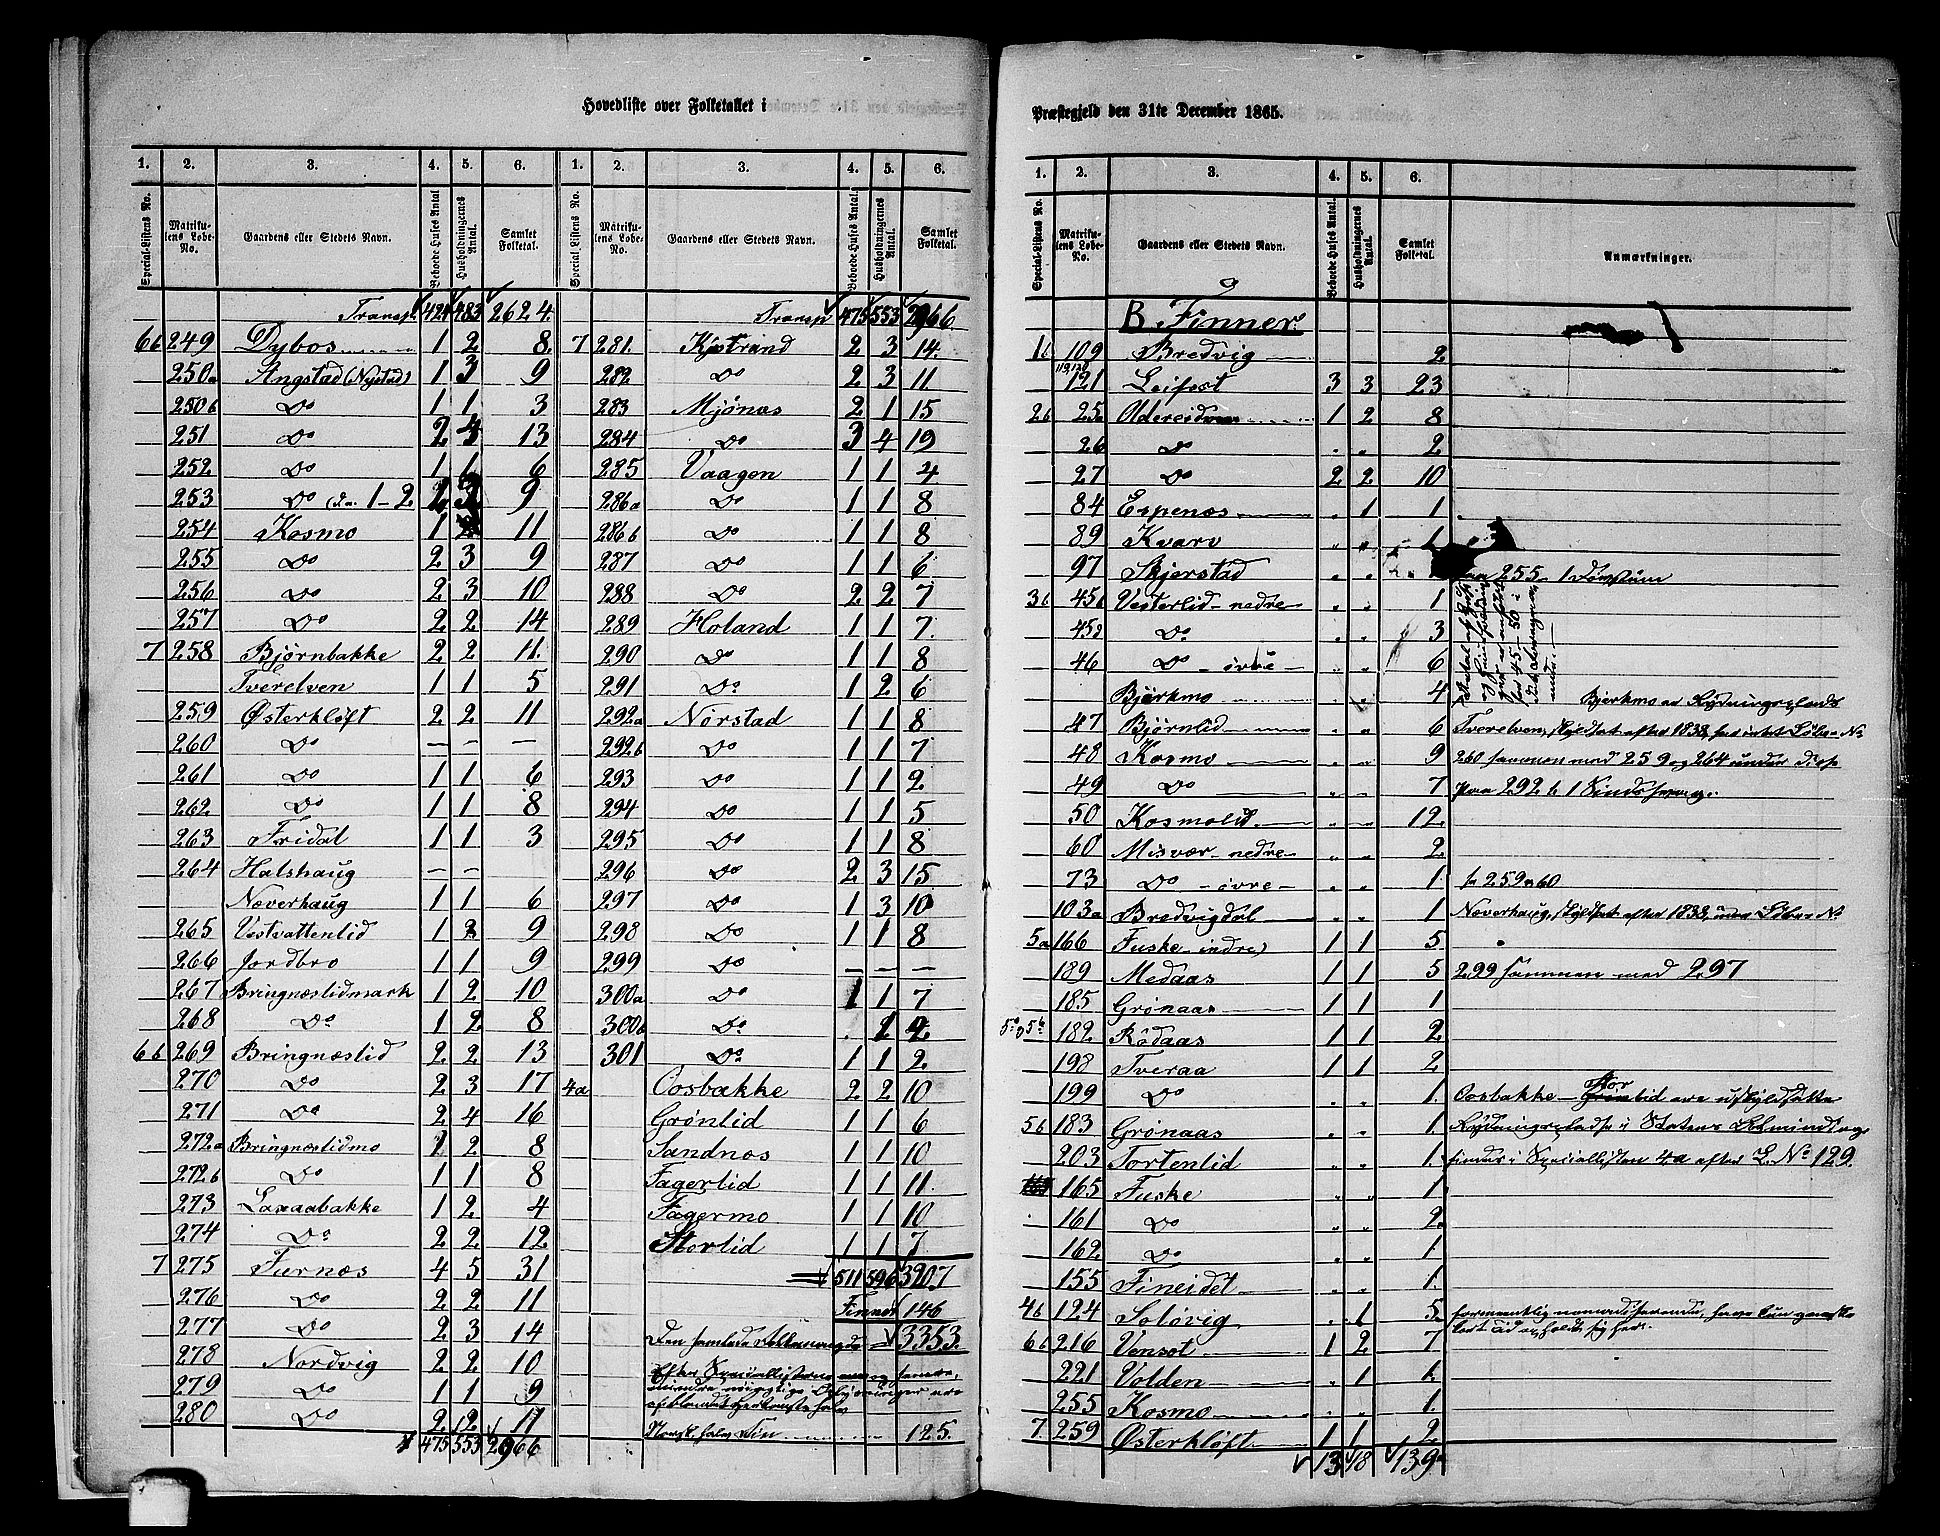 Hovedliste over Folketallet i
Præstegjeld den 31te December 1865.
1. 2. 3. 4. 5. 6. 1. 2. 3. 4. 5. 6.
Special-Listens No. Matrikulens Løbe-No. Gaardens eller Stedets Navn. Beboede Huses Antal Husholdningernes Antal. Samlet Folketal. Special-Listens No. Matrikulens Løbe-No. Gaardens eller Stedets Navn. Beboede Huses Antal. Husholdningernes Antal. Samlet Folketal.
Transp. 424 483 2624
6b 249 Dybos 1 2 8
250a Angstad (Nystad) 1 3 9
250b Do 1 1 3
251 Do 2 4 13
252 Do 1 1 6
253 Do 1-2 2 3 9
254 Kosmo 1 2 11
255 Do 2 3 9
256 Do 2 3 10
257 Do 2 2 14
7 258 Bjørnbakke 2 2 11
Tverelven 1 1 5
259 Østerkløft 2 2 11
260 Do — — —
261 Do 1 1 6
262 Do 1 1 8
263 Fridal 1 1 3
264 Halshaug — —
Næverhaug 1 1 6
265 Vestvattenlid 1 2 9
266 Jordbro 1 1 9
267 Bringnæslidmark 1 2 10
268 Do 1 2 8
6b 269 Bringnæslid 2 2 13
270 Do 2 3 17
271 Do 2 4 16
272a Bringnæslidmo 1 2 8
272b Do 1 1 8
273 Laxaabakke 1 2 4
274 Do 2 2 12
7 275 Furnæs 4 5 31
276 Do 2 2 11
277 Do 2 3 14
278 Nordvig 2 2 10
279 Do 1 1 9
280 Do 2 2 17
475 553 2966
Transp 475 553 2966
7 281 Kistrand 2 3 14
282 Do 2 3 11
283 Mjønæs 2 1 15
284 Do 3 4 19
285 Vaagen 1 1 4
286a Do 1 1 8
286b Do 1 1 8
287 Do 1 1 6
288 Do 2 2 7
289 Holand 1 1 7
290 Do 1 1 8
291 Do 1 2 6
292a Nørstad 1 1 8
292b Do 1 1 7
293 Do 1 1 2
294 Do 1 1 5
295 Do 1 1 8
296 Do 2 3 15
297 Do 1 3 10
298 Do 1 1 8
299 Do — — —
300a Do 1 1 7
300b Do . 2
301 Do 1 1 2
4a Cosbakke 2 2 10
Grønlid 1 1 6
Sandnæs 1 1 10
Fagerlid 1 1 11
Fagermo 1 1 10
Storlid 1 1 7
511 596 3207
Finner 146
Den samlede Folkemængde 3353
Efter Speciallisterne
Norsk halv Fin 125.
1. 2. 3. 4. 5. 6.
Special-Listens No. Matrikulens Løbe-No. Gaardens eller Stedets Navn. Beboede Huses Antal. Husholdningernes Antal. Samlet Folketal. Anmærkninger.
B. Finner.
109 Bredvig 2
121 Leifset 3 3 23
2b 25 1 2 8
26 Do . . 2
27 Do 2 2 10
84 Espenæs . 1 1
89 Kvarv . . 1
97 Skjerstad . .
Paa 255 1 Døvstum
3b 45b Vesterlid nedre . . 1
45d Do . . 3
46 Do øvre . . 6
Bjørkmo . . 4
Bjerkmo er Rydningsplads
47 Bjørnlid . . 6
Tverelven, skyldsat efter 1838, har intet Løbe-No
48 Kosmo . . 9
260 sammen med 259 og 264 under disp
49 Do . . 7
Paa 292 b 1 Sindssvag.
50 Kosmolid . . 12
60 Misvær nedre . . 2
73 Do øvre . . 1
259 60
103a Bredvigdal . . 1
Næverhaug, skyldsat efter 1838, uden Løbe-No
5a 166 Fuske indre 1 1 5
189 Medaas 1 1 5
299 sammen med 297
185 Grønaas 1 1 1
182 Rødaas 1 1 2
198 Tveraa 1 1 2
199 Do . . 1
Cosbakke — Storlid ere uskyldsatte
5b 183 Grønaas . . 1
Rydningspladse i Statens Almindlag,
203 Tortenlid . . 1
findes i Speciallisten 4a efter L. No 129.
165 Fuske . . 1
161 Do . . 2
162 Do . . 1
155 Fineidet . . 1
4b 124 Soløvig . 1 5
6b 216 Vensot 1 2 7
221 Volden . 1 1
255 Kosmo . . 1
7 259 Østerkløft 1 1 2
13 18 139